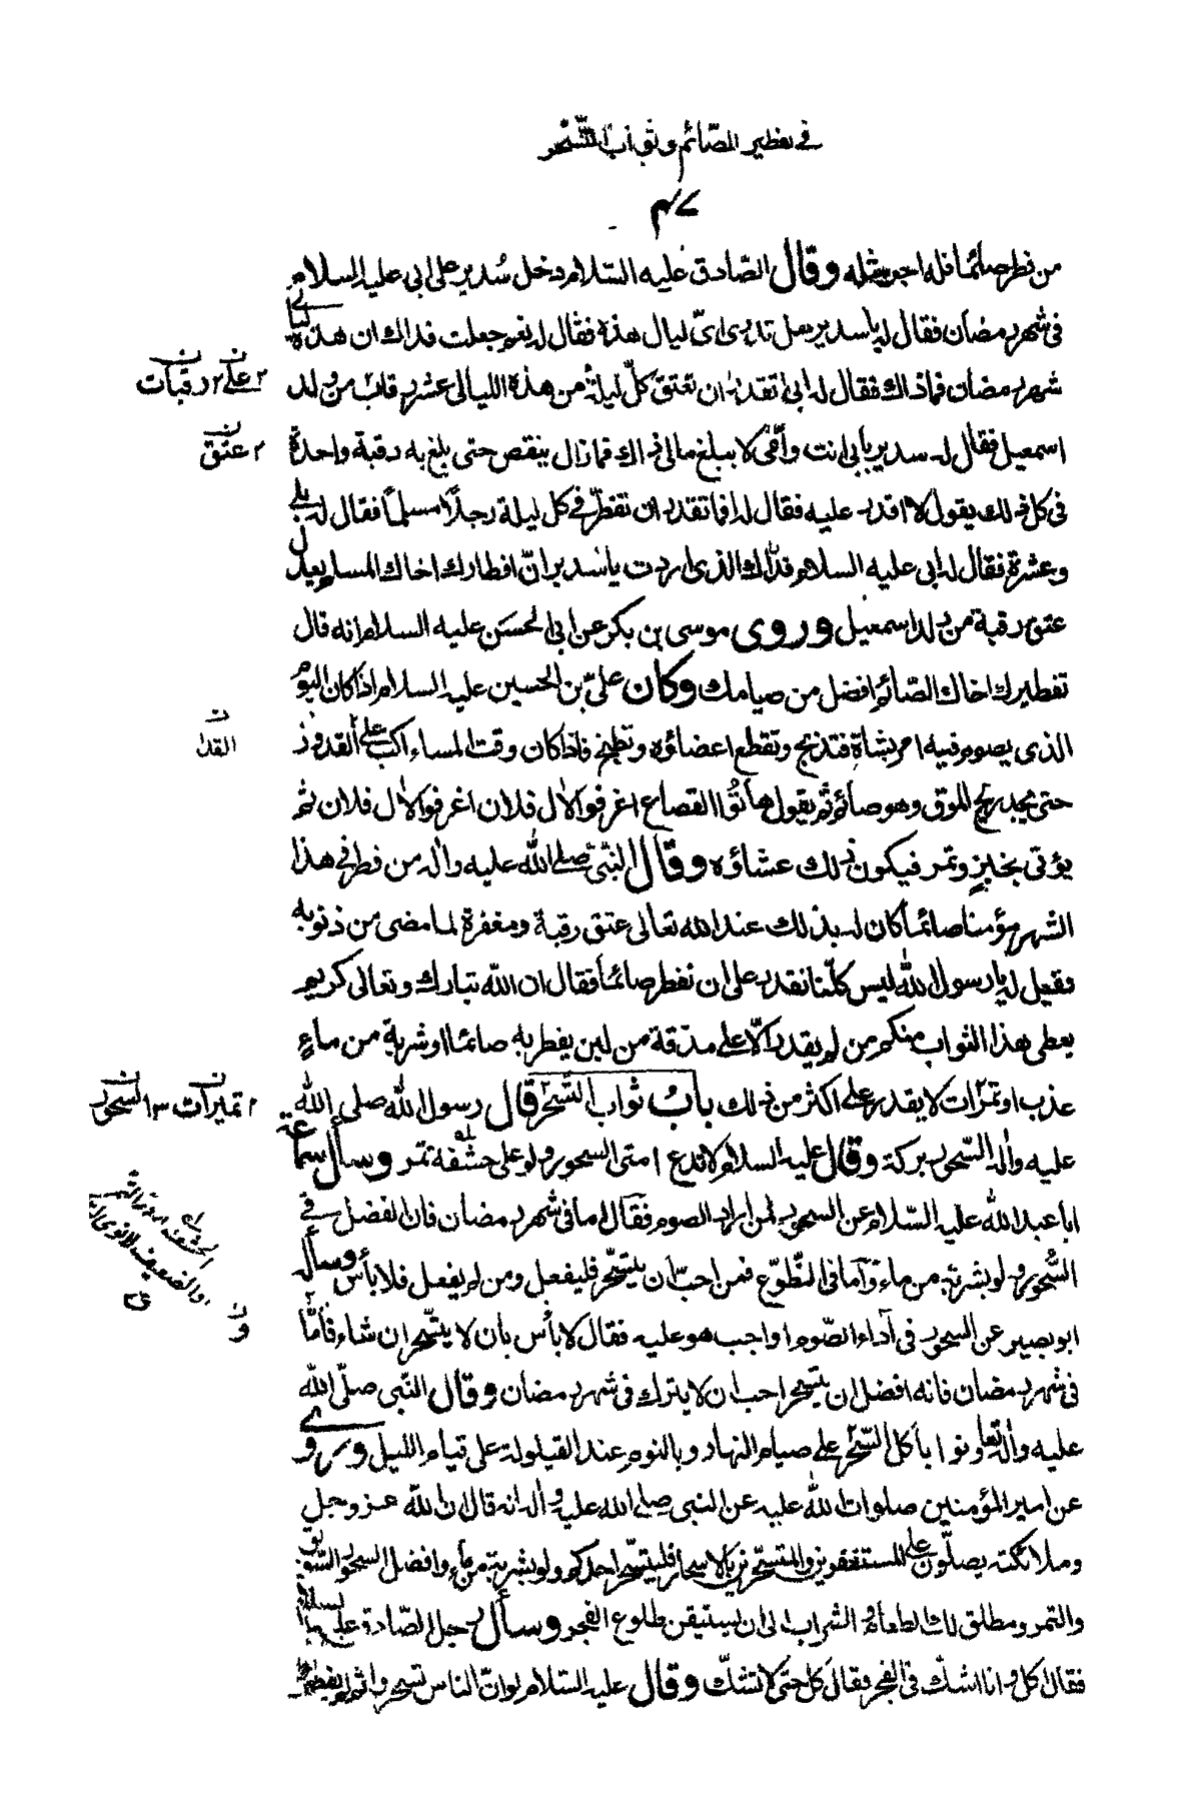 في تفطير الصّائم وثواب السّحر
من فطر صائما فله اجر مثله وقال الصّادق عليه السّلام دخل سُدير على ابي عليه السلام
في شهر رمضان فقال له يا سدير هل تدري ايّ ليال هذه فقال له نعم جعلت فداك ان هذه ليالي
شهر رمضان فما ذاك فقال له ابي اتقدر ان تعتق كلّ ليلة من هذه الليالى عشر رقاب من ولد
اسمعيل فقال له سدير بابي انت وأمّي لا يبلغ مالى ذاك فما زال ينقص حتى بلغ به رقبة واحدة
في كل ذلك يقول لا اقدر عليه فقال له افما تقدر ان تفطّر في كل ليلة رجلاً مسلماً فقال له بلى
وعشرة فقال له ابي عليه السلام فذاك الذى اردت يا سدير انّ افطارك اخاك المسلم يعدل
عتق رقبة من ولد اسمعيل وروى موسى بن بكر عن ابي الحسن عليه السلام انه قال
تفطيرك اخاك الصّائم افضل من صيامك وكان علىّ بن الحسين عليه السلام اذا كان اليوم
الذى يصوم فيه امر بشاة فتذبح وتقطع اعضاؤه وتطبخ فاذا كان وقت المساء اكبّ على القدور
حتى يجد ريح المرق وهو صائم ثم يقول هاتُوا القصاع اغرفوا لال فلان اغرفوا لال فلان ثم
يؤتى بخبز وتمر فيكون ذلك عشاؤه وقال النبيّ صلى الله عليه واله من فطر في هذا
الشهر مؤمنا صائماً كان له بذلك عند الله تعالى عتق رقبة ومغفرة لما مضى من ذنوبه
فقيل له يا رسول الله ليس كلّنا نقدر على ان نفطر صائماً فقال ان الله تبارك وتعالى كريم
يعطى هذا الثواب منكم من لم يقدر الّا على مذقة من لبن يفطر به صائما او شربة من ماءٍ
عذب او تمرات لا يقدر على اكثر من ذلك بابُ ثواب السّحر قال رسول الله صلى الله
عليه واله السّحور بركة وقال عليه السلام لا تدع امتى السحور ولو على حشفة تمر وسأل سماعة
ابا عبد الله عليه السّلام عن السحور لمن اراد الصوم فقال اما في شهر رمضان فان الفضل في
السّحور ولو بشربة من ماء وَاما في التطوّع فمن احبّ ان يتسحّر فليفعل ومن لم يفعل فلا بأس وسأله
ابو بصير عن السحور في اداء الصّوم اواجب هو عليه فقال لا بأس بان لا يتسحّر ان شاء فأمّا
في شهر رمضان فانه افضل ان يتسحر احب ان لا يترك في شهر رمضان وقال النّبى صلّى الله
عليه واله تعاونوا بأكل السّحر على صيام النهار وبالنوم عند القيلولة على قيام الليل وروى
عن امير المؤمنين صلوات الله عليه عن النبى صلى الله عليه واله انه قال ان الله عز وجل
وملائكته يصلّون على المستغفرين والمتسحّرين بالاسحار فليتسحّر احدكم ولو بشربة من ماء وافضل السحور السّويق
والتمر ومطلق لك الطعام والشراب الى ان تستيقن طلوع الفجر وسأل رجل الصّادق عليه السلام
فقال اكل وانا اشك في الفجر فقال كُل حتّى لا تشكّ وقال عليه السّلام لو انّ الناس تسحروا ثم لم يفطروا
٢ على ٢ رقبات
٢ عتق
القدر
٢ تميرات ٣ السحور
و